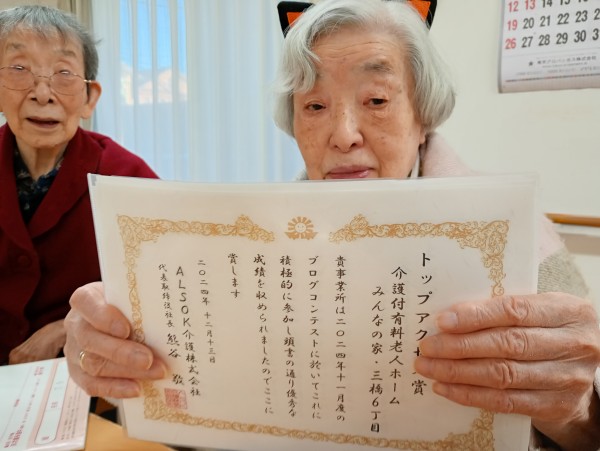 トップアクセス賞
介護付有料老人ホーム
みんなの家・三橋6丁目
貴事業所は二〇二四年十一月度の
ブログコンテストに於いてこれに
積極的に参加し頭書の通り優秀な
成績を収められましたのでここに
賞します
二〇二四年 十二月十三日
ALSOK介護株式会社
代表取締役社長 熊谷 敬
12 13 14 15
19 20 21 22
26 27 28 29 30 31